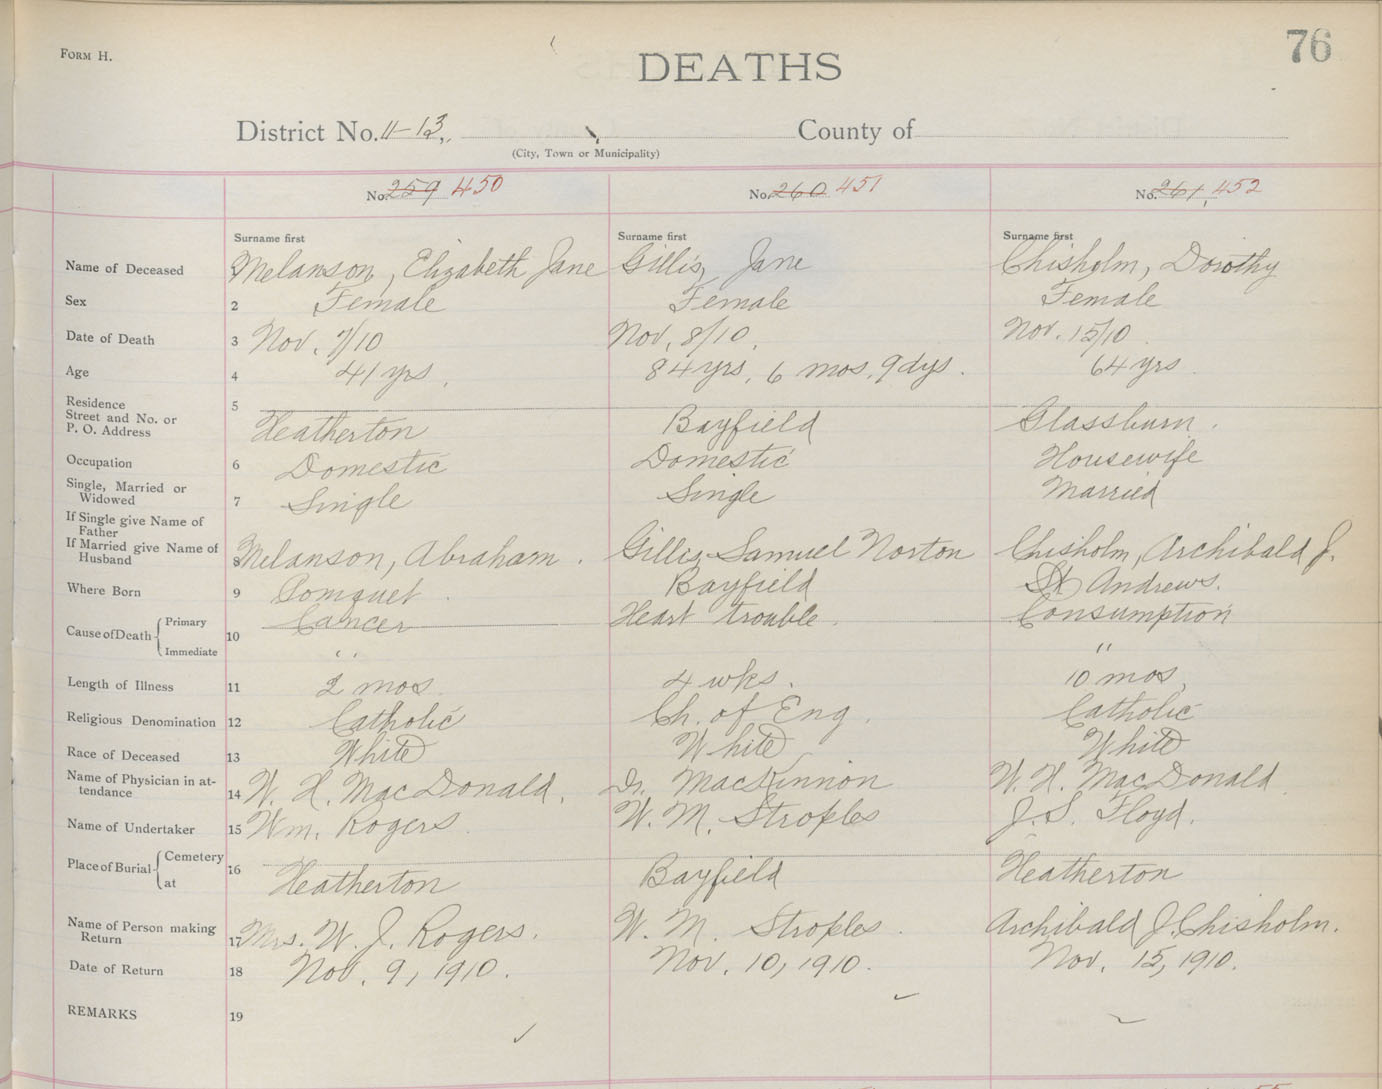 FORM H.
76
DEATHS
District No. 11-13, County of
(City, Town or Municipality)
No. 259 450 No. 260 451 No. 261, 452
Surname first Surname first Surname first
Name of Deceased Melanson, Elizabeth Jane Gillis, Jane Chisholm, Dorothy
Sex 2 Female Female Female
Date of Death 3 Nov. 7/10 Nov. 8/10. Nov. 15/10.
Age 4 41 yrs. 84 yrs. 6 mos. 9 dys. 64 yrs
Residence 5
Street and No. or
P. O. Address Heatherton Bayfield Glassburn.
Occupation 6 Domestic Domestic Housewife
Single, Married or
Widowed 7 Single Single Married
If Single give Name of
Father
If Married give Name of
Husband 8 Melanson, Abraham. Gillis, Samuel Norton Chisholm, Archibald J.
Where Born 9 Pomquet. Bayfield St Andrews.
Cause of Death Primary 10 Cancer Heart trouble. Consumption
Immediate " "
Length of Illness 11 2 mos. 4 wks. 10 mos,
Religious Denomination 12 Catholic Ch. of Eng. Catholic
Race of Deceased 13 White White White
Name of Physician in at-
tendance 14 W. H. MacDonald. Dr. MacKinnon W. H. MacDonald
Name of Undertaker 15 Wm. Rogers. W. M. Stroples J. S. Floyd.
Place of Burial Cemetery 16
at Heatherton Bayfield Heatherton
Name of Person making
Return 17 Mrs. W. J. Rogers. W. M. Stroples. Archibald J. Chisholm.
Date of Return 18 Nov. 9, 1910. Nov. 10, 1910. Nov. 15, 1910.
REMARKS 19